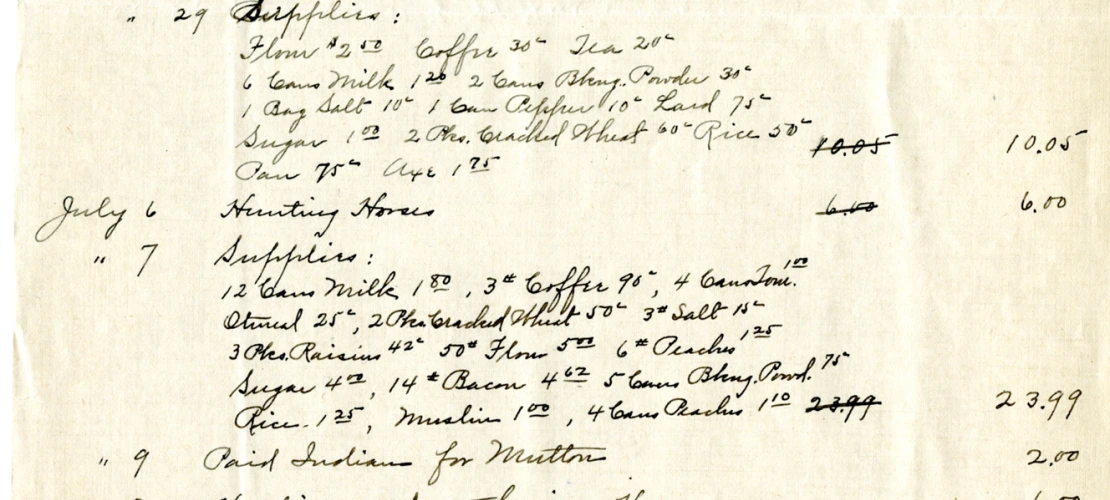 " 29 Supplies:
Flour $2 50 Coffee 30c Tea 20c
6 Cans Milk 1 20 2 Cans Bkng. Powder 30c
1 Bag Salt 10c 1 Can Pepper 10c Lard 75c
Sugar 1 00 2 Pks. Cracked Wheat 60c Rice 50c 10.05 10.05
Pan 75c Axe 1 75
July 6 Hunting Horses 6.00 6.00
" 7 Supplies:
12 Cans Milk 1 80, 3# Coffee 90c, 4 Cans Tom. 1 00
Otmeal 25c, 2 Pks. Cracked Wheat 50c 3# Salt 15c
3 Pks. Raisins 42c 50# Flour 5 00 6# Peaches 1 25
Sugar 4 00, 14# Bacon 4 62 5 Cans Bkng. Powd. 75
Rice. 1 25, Muslin 1 00, 4 Cans Peaches 1 10 23.99 23.99
" 9 Paid Indians for Mutton 2.00